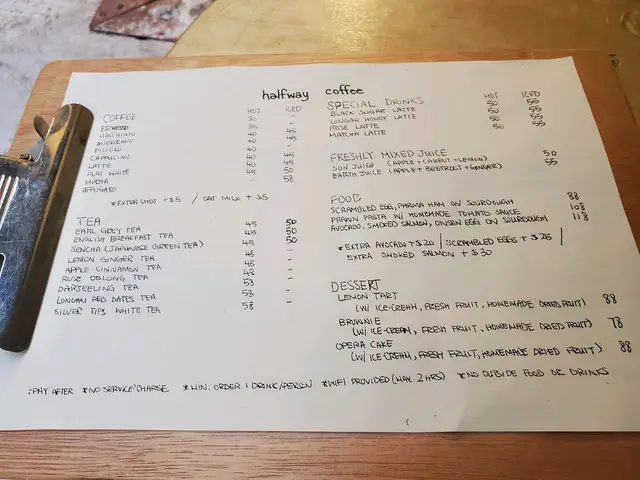 halfway coffee
COFFEE HOT ICED
ESPRESSO 30 -
MACCHIATO 35
AMERICANO 40 45
PICCOLO 40 -
CAPPUCINO 40 45
LATTE 40 45
FLAT WHITE 40 45
MOCHA 45 50
AFFOGATO - 58
*EXTRA SHOT +$5 / OAT MILK +$5
TEA
EARL GREY TEA 45 50
ENGLISH BREAKFAST TEA 45 50
SENCHA (JAPANESE GREEN TEA) 45 50
LEMON GINGER TEA 48 -
APPLE CINNAMON TEA 48 -
ROSE OOLONG TEA 48 -
DARJEELING TEA 53 -
LONGAN RED DATES TEA 53 -
SILVER TIPS WHITE TEA 58 -
SPECIAL DRINKS HOT ICED
BLACK SUGAR LATTE 50 55
LONGAN HONEY LATTE 50 55
ROSE LATTE 50 55
MATCHA LATTE 50 55
FRESHLY MIXED JUICE
SUN JUICE (APPLE + CARROT + LEMON) 50
EARTH JUICE (APPLE + BEETROOT + GINGER) 55
FOOD
SCRAMBLED EGG, PARMA HAM ON SOURDOUGH 88
PRAWN PASTA W/ HOMEMADE TOMATO SAUCE 108
AVOCADO, SMOKED SALMON, ONSEN EGG ON SOURDOUGH 118
*EXTRA AVOCADO +$20 / SCRAMBLED EGGS +$25 /
EXTRA SMOKED SALMON +$30
DESSERT
LEMON TART
(W/ ICE-CREAM, FRESH FRUIT, HOMEMADE DRIED FRUIT) 88
BROWNIE
(W/ ICE-CREAM, FRESH FRUIT, HOMEMADE DRIED FRUIT) 78
OPERA CAKE
(W/ ICE CREAM, FRESH FRUIT, HOMEMADE DRIED FRUIT) 88
*PAY AFTER *NO SERVICE CHARGE *MIN. ORDER 1 DRINK/PERSON *WIFI PROVIDED (MAX 2 HRS) *NO OUTSIDE FOOD OR DRINKS